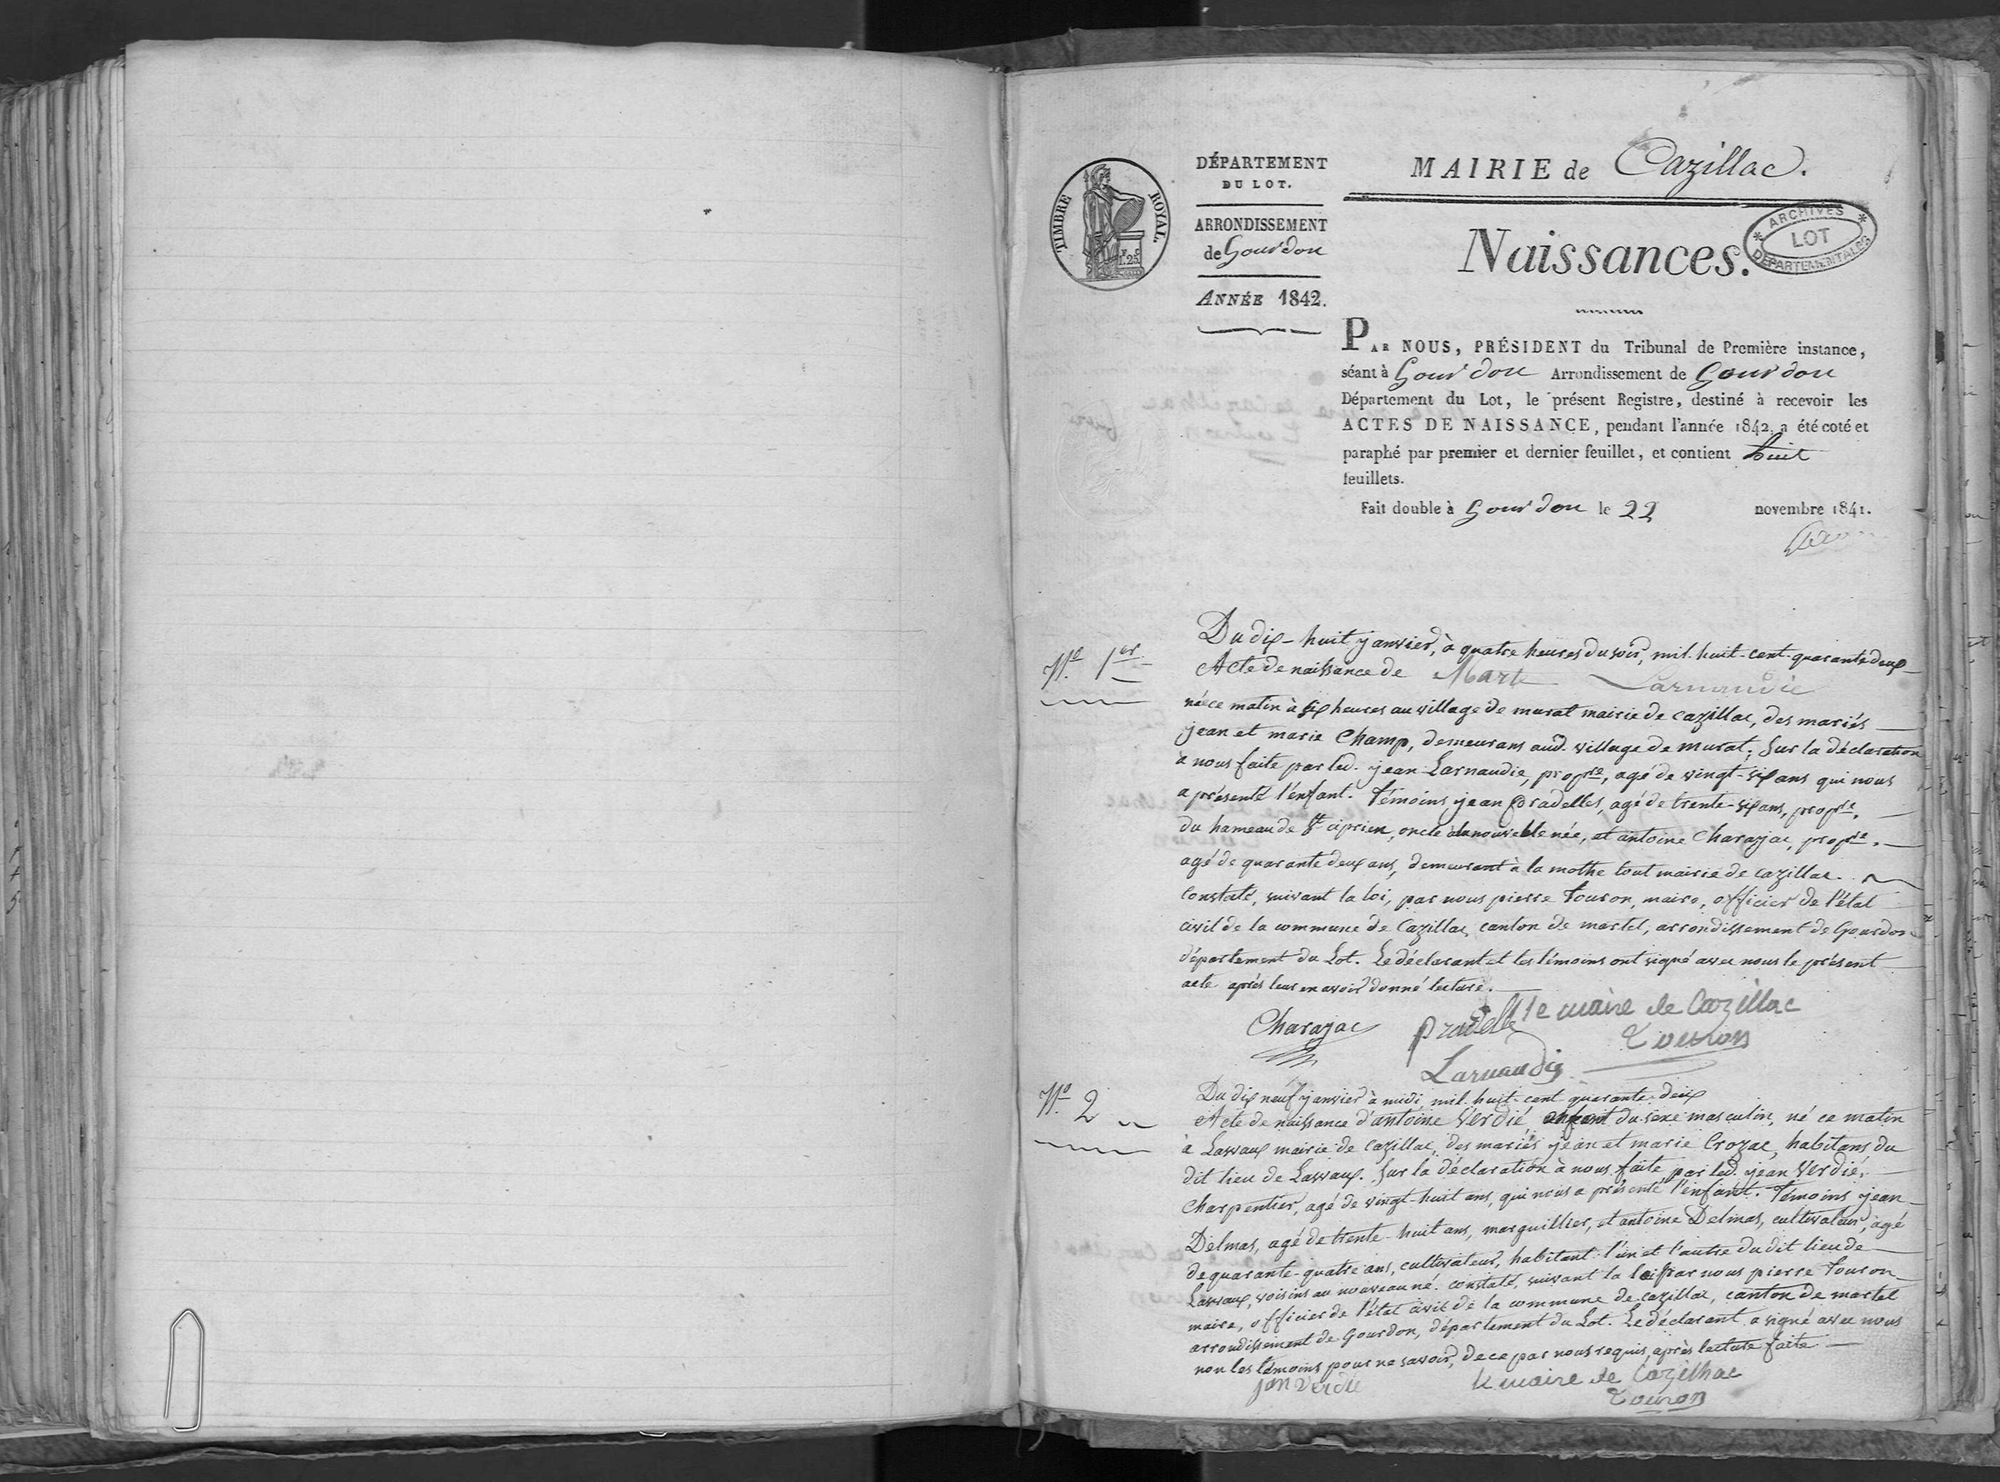 DÉPARTEMENT
DU LOT.
ARRONDISSEMENT
de Gourdon
ANNÉE 1842.
TIMBRE ROYAL.
1.25
MAIRIE de Cazillac.
ARCHIVES
LOT
DÉPARTEMENTALES
Naissances.
PAR NOUS, PRÉSIDENT du Tribunal de Première instance,
séant à Gourdon Arrondissement de Gourdon
Département du Lot, le présent Registre, destiné à recevoir les
ACTES DE NAISSANCE, pendant l'année 1842, a été coté et
paraphé par premier et dernier feuillet, et contient huit
feuillets.
Fait double à Gourdon le 22 novembre 1841.
N.º 1er
Du dix-huit janvier, à quatre heures du soir, mil-huit-cent-quarante deux
Acte de naissance de Larnaudie
née ce matin à six heures au village de murat mairie de cazillac, des mariés
jean et marie Champ, demeurans aud. village de murat; Sur la déclaration
à nous faite par led. jean Larnaudie, propre, agé de vingt-six ans qui nous
a présenté l'enfant. Témoins jean Pradelles, agé de trente-six ans, propre.
du hameau de St ciprien, oncle nouvelle née, et antoine Charazac, propre.
agé de quarante deux ans, demeurant à la mothe tout mairie de cazillac.
Constaté, suivant la loi, par nous pierre Touron, maire, officier de l'état
civil de la commune de Cazillac, canton de martel, arrondissement de Gourdon
département du Lot. Le déclarant et les témoins ont signé avec nous le présent
acte après leur en avoir donné lecture.
Charazac Pradelle le maire de Cazillac
Touron
Larnaudie
N.º 2
Du dix neuf janvier à midi mil-huit-cent quarante-deux
Acte de naissance d'antoine Verdié, enfant du sexe masculin, né ce matin
à Lasvaux mairie de Cazillac, des mariés jean et marie Crozac, habitans du
dit lieu de Lasvaux. Sur la déclaration à nous faite par led. jean Verdié,
charpentier, agé de vingt-huit ans, qui nous a présenté l'enfant. Témoins jean
Delmas, agé de trente-huit ans, marguillier, et antoine Delmas, cultivateur, agé
de quarante-quatre ans, cultivateur, habitant l'un et l'autre du dit lieu de
Lasvaux, voisins au nouveau né. Constaté, suivant la loi par nous pierre Touron
maire, officier de l'état civil de la commune de cazillac, canton de martel
arrondissement de Gourdon, département du Lot. Le déclarant a signé avec nous
non les témoins pour ne savoir, de ce par nous requis, après lecture faite
jean Verdié le maire de Cazilhac
Touron